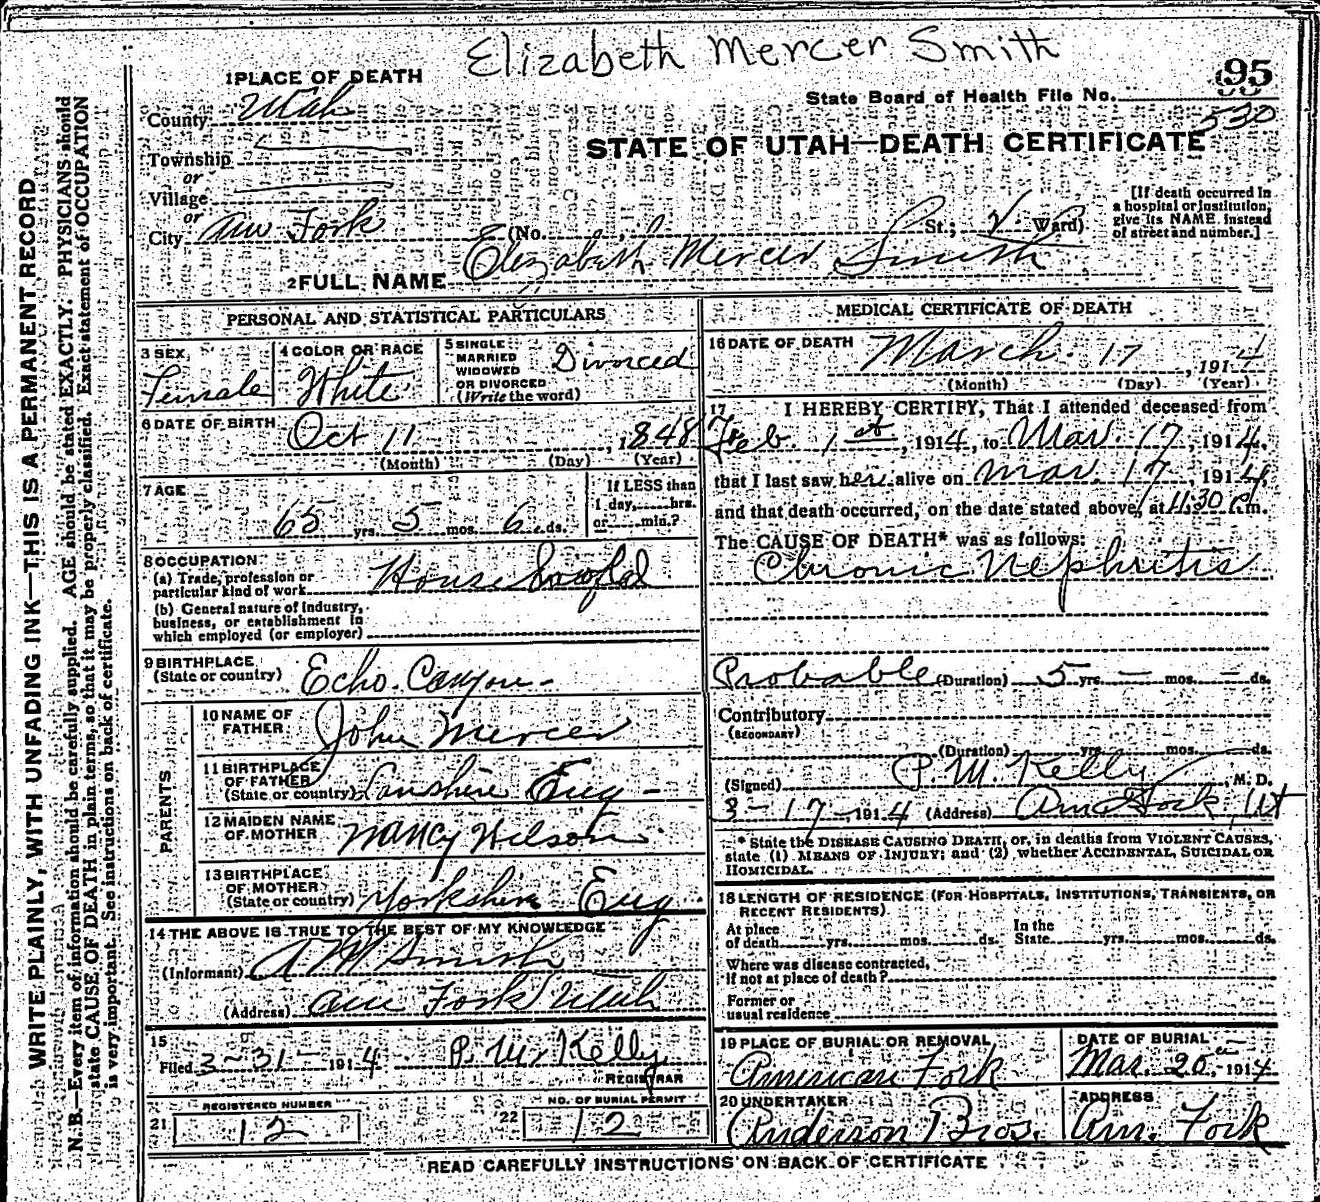 Elizabeth Mercer Smith
95
State Board of Health File No.
530
1 PLACE OF DEATH
County Utah
STATE OF UTAH—DEATH CERTIFICATE
Township
or
Village
or
City Am Fork (No. St.; Ward)
[If death occurred in
a hospital or institution,
give its NAME instead
of street and number.]
2 FULL NAME Elizabeth Mercer Smith
PERSONAL AND STATISTICAL PARTICULARS
3 SEX Female
4 COLOR OR RACE White
5 SINGLE
MARRIED
WIDOWED
OR DIVORCED
(Write the word) Divorced
6 DATE OF BIRTH Oct 11, 1848
(Month) (Day) (Year)
7 AGE 65 yrs. 5 mos. 6 ds.
If LESS than
1 day, hrs.
or min.?
8 OCCUPATION
(a) Trade, profession or
particular kind of work House
(b) General nature of industry,
business, or establishment in
which employed (or employer)
9 BIRTHPLACE
(State or country) Echo Canyon
PARENTS
10 NAME OF
FATHER John Mercer
11 BIRTHPLACE
OF FATHER
(State or country) Eng
12 MAIDEN NAME
OF MOTHER Nancy Wilson
13 BIRTHPLACE
OF MOTHER
(State or country) Yorkshire Eng
14 THE ABOVE IS TRUE TO THE BEST OF MY KNOWLEDGE
(Informant) A M Smith
(Address) Am Fork Utah
15
Filed 3-31-1914 P. M. Kelly
REGISTRAR
21 REGISTERED NUMBER
12
22 NO. OF BURIAL PERMIT
12
MEDICAL CERTIFICATE OF DEATH
16 DATE OF DEATH March 17, 1914
(Month) (Day) (Year)
17 I HEREBY CERTIFY, That I attended deceased from
Feb 1st, 1914, to Mar. 17, 1914,
that I last saw her alive on Mar. 17, 1914,
and that death occurred, on the date stated above, at 11:30 P.m.
The CAUSE OF DEATH* was as follows:
Chronic Nephritis
Probable (Duration) 5 yrs. — mos. — ds.
Contributory
(SECONDARY)
(Duration) yrs. mos. ds.
(Signed) P. M. Kelly, M. D.
3-17-1914 (Address) Am Fork, Ut
* State the DISEASE CAUSING DEATH, or, in deaths from VIOLENT CAUSES,
state (1) MEANS OF INJURY; and (2) whether ACCIDENTAL, SUICIDAL OR
HOMICIDAL.
18 LENGTH OF RESIDENCE (FOR HOSPITALS, INSTITUTIONS, TRANSIENTS, OR
RECENT RESIDENTS)
At place
of death yrs. mos. ds.
In the
State yrs. mos. ds.
Where was disease contracted,
If not at place of death?
Former or
usual residence
19 PLACE OF BURIAL OR REMOVAL
American Fork
DATE OF BURIAL
Mar. 20 1914
20 UNDERTAKER
Anderson Bros.
ADDRESS
Am. Fork
READ CAREFULLY INSTRUCTIONS ON BACK OF CERTIFICATE
WRITE PLAINLY, WITH UNFADING INK—THIS IS A PERMANENT RECORD
N. B.—Every item of information should be carefully supplied. AGE should be stated EXACTLY. PHYSICIANS should
state CAUSE OF DEATH in plain terms, so that it may be properly classified. Exact statement of OCCUPATION
is very important. See instructions on back of certificate.